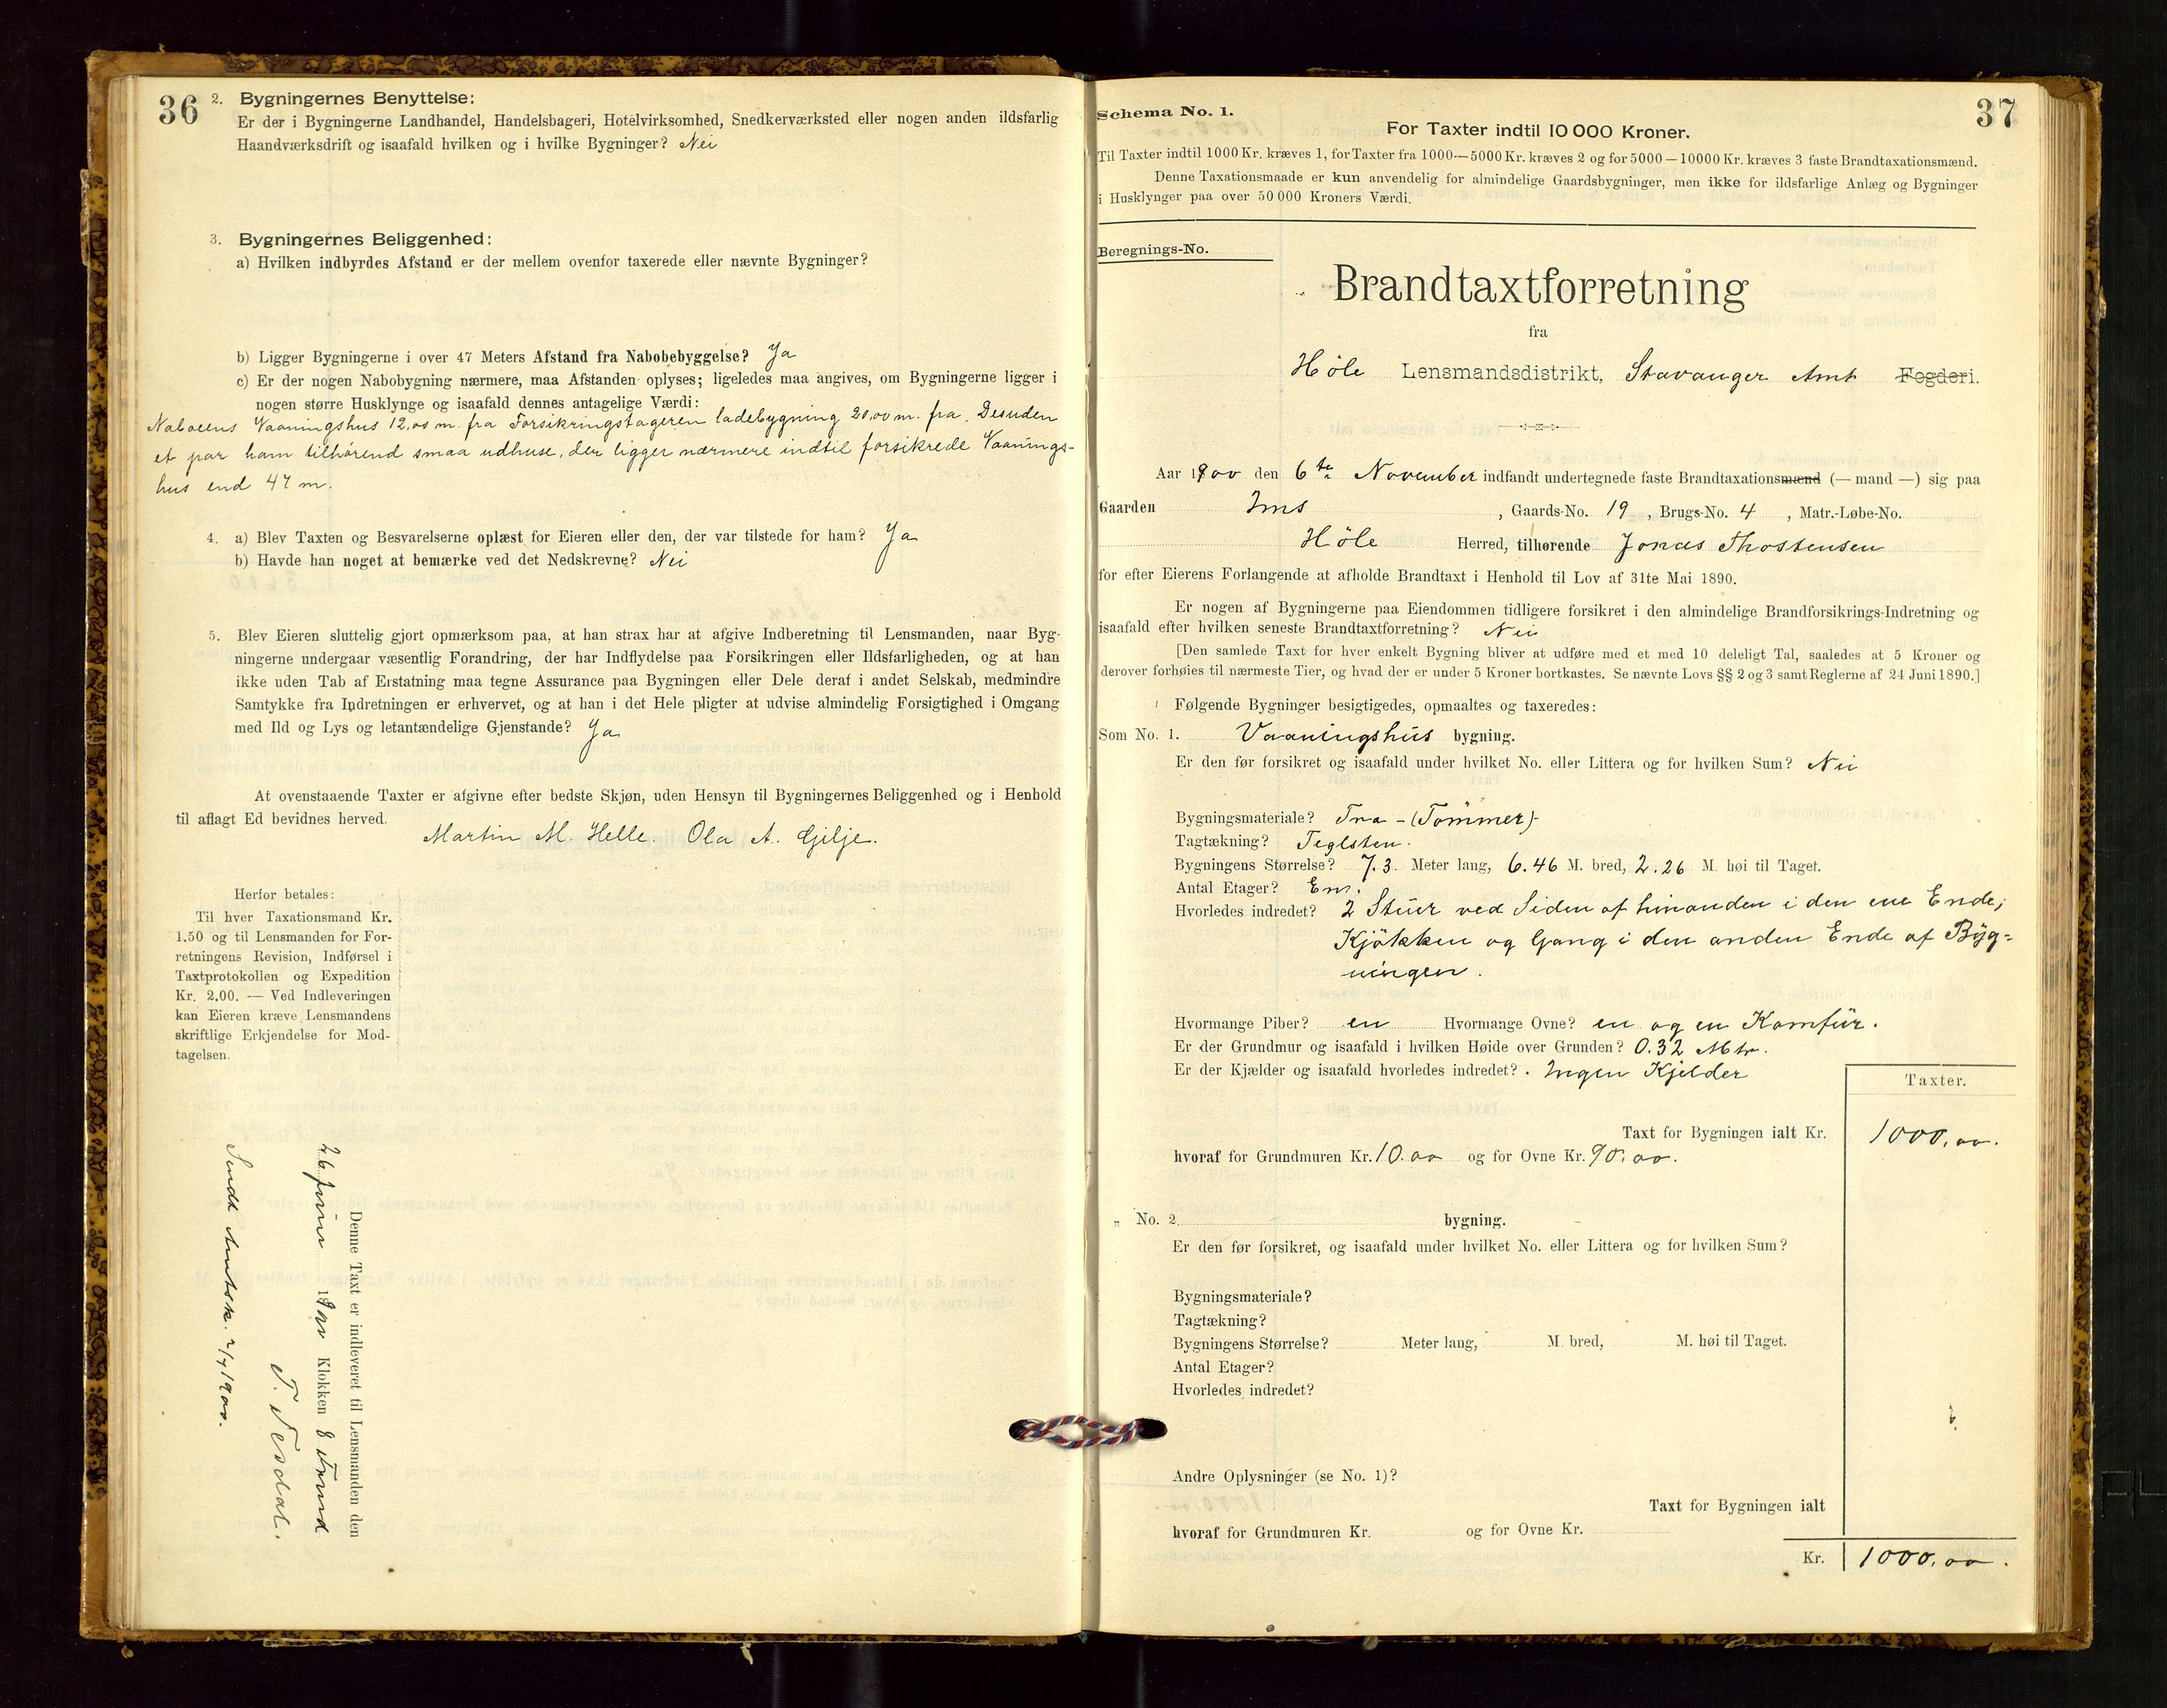 36
2. Bygningernes Benyttelse:
Er der i Bygningerne Landhandel, Handelsbageri, Hotelvirksomhed, Snedkerværksted eller nogen anden ildsfarlig
Haandværksdrift og isaafald hvilken og i hvilke Bygninger? Nei
3. Bygningernes Beliggenhed:
a) Hvilken indbyrdes Afstand er der mellem ovenfor taxerede eller nævnte Bygninger?
b) Ligger Bygningerne i over 47 Meters Afstand fra Nabobebyggelse? Ja
c) Er der nogen Nabobygning nærmere, maa Afstanden oplyses; ligeledes maa angives, om Bygningerne ligger i
nogen større Husklynge og isaafald dennes antagelige Værdi:
Naboens Vaaningshus 12,00 m. fra Forsikringstageren ladebygning 20,00 m. fra. Desuden
et par ham tilhørend smaa udhuse, der ligger nærmere indtil forsikrede Vaanings-
hus end 47 m.
4. a) Blev Taxten og Besvarelserne oplæst for Eieren eller den, der var tilstede for ham? Ja
b) Havde han noget at bemærke ved det Nedskrevne? Nei
5. Blev Eieren sluttelig gjort opmærksom paa, at han strax har at afgive Indberetning til Lensmanden, naar Byg-
ningerne undergaar væsentlig Forandring, der har Indflydelse paa Forsikringen eller Ildsfarligheden, og at han
ikke uden Tab af Erstatning maa tegne Assurance paa Bygningen eller Dele deraf i andet Selskab, medmindre
Samtykke fra Indretningen er erhvervet, og at han i det Hele pligter at udvise almindelig Forsigtighed i Omgang
med Ild og Lys og letantændelige Gjenstande? Ja
At ovenstaaende Taxter er afgivne efter bedste Skjøn, uden Hensyn til Bygningernes Beliggenhed og i Henhold
til aflagt Ed bevidnes herved.
Martin M. Helle. Ola A. Gilje.
Herfor betales:
Til hver Taxationsmand Kr.
1.50 og til Lensmanden for For-
retningens Revision, Indførsel i
Taxtprotokollen og Expedition
Kr. 2.00. — Ved Indleveringen
kan Eieren kræve Lensmandens
skriftlige Erkjendelse for Mod-
tagelsen.
Denne Taxt er indleveret til Lensmanden den
26 juni 1900 Klokken 8
T. Tesdal.
Sendt Amtsk. 2/7 1900.
37
Schema No. 1.
For Taxter indtil 10 000 Kroner.
Til Taxter indtil 1000 Kr. kræves 1, for Taxter fra 1000—5000 Kr. kræves 2 og for 5000—10000 Kr. kræves 3 faste Brandtaxationsmænd.
Denne Taxationsmaade er kun anvendelig for almindelige Gaardsbygninger, men ikke for ildsfarlige Anlæg og Bygninger
i Husklynger paa over 50 000 Kroners Værdi.
Beregnings-No.
Brandtaxtforretning
fra
Høle Lensmandsdistrikt, Stavanger Amt Fogderi.
Aar 1900 den 6te November indfandt undertegnede faste Brandtaxationsmænd (— mand —) sig paa
Gaarden Ims , Gaards-No. 19 , Brugs-No. 4 , Matr.-Løbe-No.
Høle Herred, tilhørende Jonas Thostensen
for efter Eierens Forlangende at afholde Brandtaxt i Henhold til Lov af 31te Mai 1890.
Er nogen af Bygningerne paa Eiendommen tidligere forsikret i den almindelige Brandforsikrings-Indretning og
isaafald efter hvilken seneste Brandtaxtforretning? Nei
[Den samlede Taxt for hver enkelt Bygning bliver at udføre med et med 10 deleligt Tal, saaledes at 5 Kroner og
derover forhøies til nærmeste Tier, og hvad der er under 5 Kroner bortkastes. Se nævnte Lovs §§ 2 og 3 samt Reglerne af 24 Juni 1890.]
Følgende Bygninger besigtigedes, opmaaltes og taxeredes:
Som No. 1. Vaaningshus bygning.
Er den før forsikret og isaafald under hvilket No. eller Littera og for hvilken Sum? Nei
Bygningsmateriale? Træ - (Tømmer)-
Tagtækning? Teglsten.
Bygningens Størrelse? 7.3. Meter lang, 6.46 M. bred, 2.26 M. høi til Taget.
Antal Etager? En.
Hvorledes indredet? 2 Stuer ved Siden af hinanden i den ene Ende;
Kjøkken og Gang i den anden Ende af Byg-
ningen.
Hvormange Piber? en Hvormange Ovne? en og en Komfur.
Er der Grundmur og isaafald i hvilken Høide over Grunden? 0.32 Mtr.
Er der Kjælder og isaafald hvorledes indredet? Ingen Kjelder
Taxter.
Taxt for Bygningen ialt Kr. 1000,00.
hvoraf for Grundmuren Kr. 10.00 og for Ovne Kr. 90.00.
„ No. 2. bygning.
Er den før forsikret, og isaafald under hvilket No. eller Littera og for hvilken Sum?
Bygningsmateriale?
Tagtækning?
Bygningens Størrelse? Meter lang, M. bred, M. høi til Taget.
Antal Etager?
Hvorledes indredet?
Andre Oplysninger (se No. 1)?
Taxt for Bygningen ialt
hvoraf for Grundmuren Kr. og for Ovne Kr.
Kr. 1000,00.